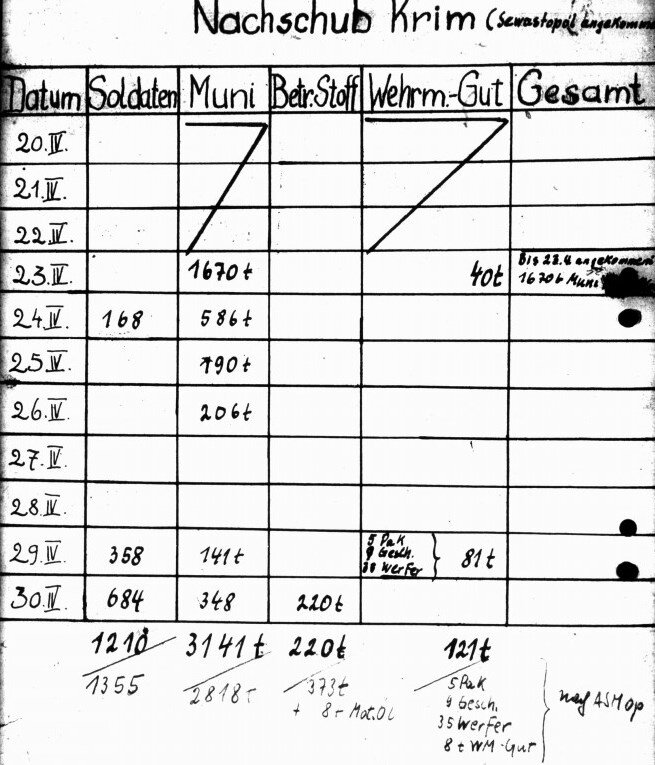 Nachschub Krim (Sewastopol angekomme
Datum Soldaten Muni Betr.Stoff Wehrm.-Gut Gesamt
20.IV.
21.IV.
22.IV.
23.IV. 1670t 40t Bis 23.4. angekommen
1670t Muni
24.IV. 168 586t
25.IV. 190t
26.IV. 206t
27.IV.
28.IV.
29.IV. 358 141t 5 Pak
9 Gesch.
Werfer } 81t
30.IV. 684 348 220t
1210 3141t 220t 121t
1355 2818t 373t
+ 8t Mot.Öl
5 Pak
9 Gesch.
35 Werfer
8t WM-Gut
nach